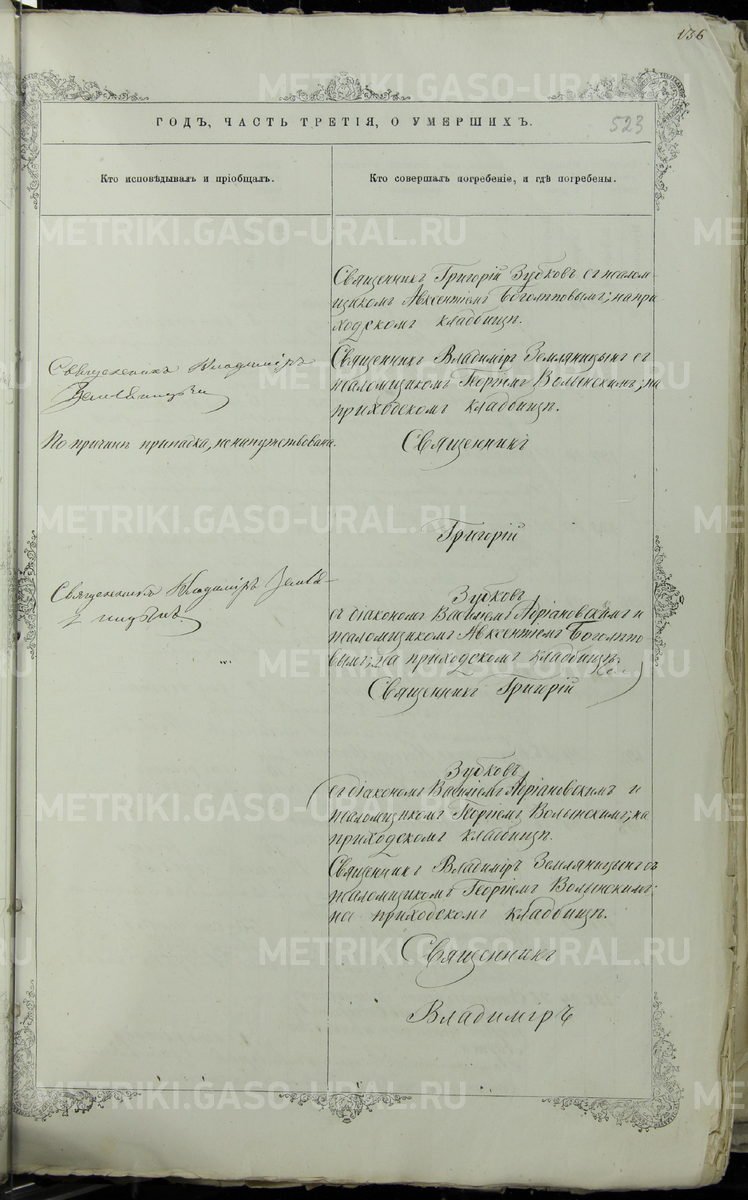 136
ГОДЪ, ЧАСТЬ ТРЕТІЯ, О УМЕРШИХЪ.
523
Кто исповѣдывалъ и пріобщалъ.
Кто совершалъ погребеніе, и гдѣ погребены.
Священникъ Григорій Зубковъ съ псалом-
щикомъ Авксентіемъ Боголѣповымъ; на при-
ходскомъ кладбищѣ.
Священникъ Владиміръ
Земляницынъ
Священникъ Владиміръ Земляницынъ съ
псаломщикомъ Георгіемъ Волынскимъ; на
приходскомъ кладбищѣ.
По причинѣ припадка, не напутствована.
Священникъ
Григорій
Священникъ Владиміръ Земля-
ницынъ
Зубковъ
съ діакономъ Василіемъ Адріановскимъ и
псаломщикомъ Авксентіемъ Боголѣпо-
вымъ; на приходскомъ кладбищѣ.
Священникъ Григорій
Зубковъ
съ діакономъ Василіемъ Адріановскимъ и
псаломщикомъ Георгіемъ Волынскимъ; на
приходскомъ кладбищѣ.
Священникъ Владиміръ Земляницынъ съ
псаломщикомъ Георгіемъ Волынскимъ;
на приходскомъ кладбищѣ.
Священникъ
Владиміръ
METRIKI.GASO-URAL.RU